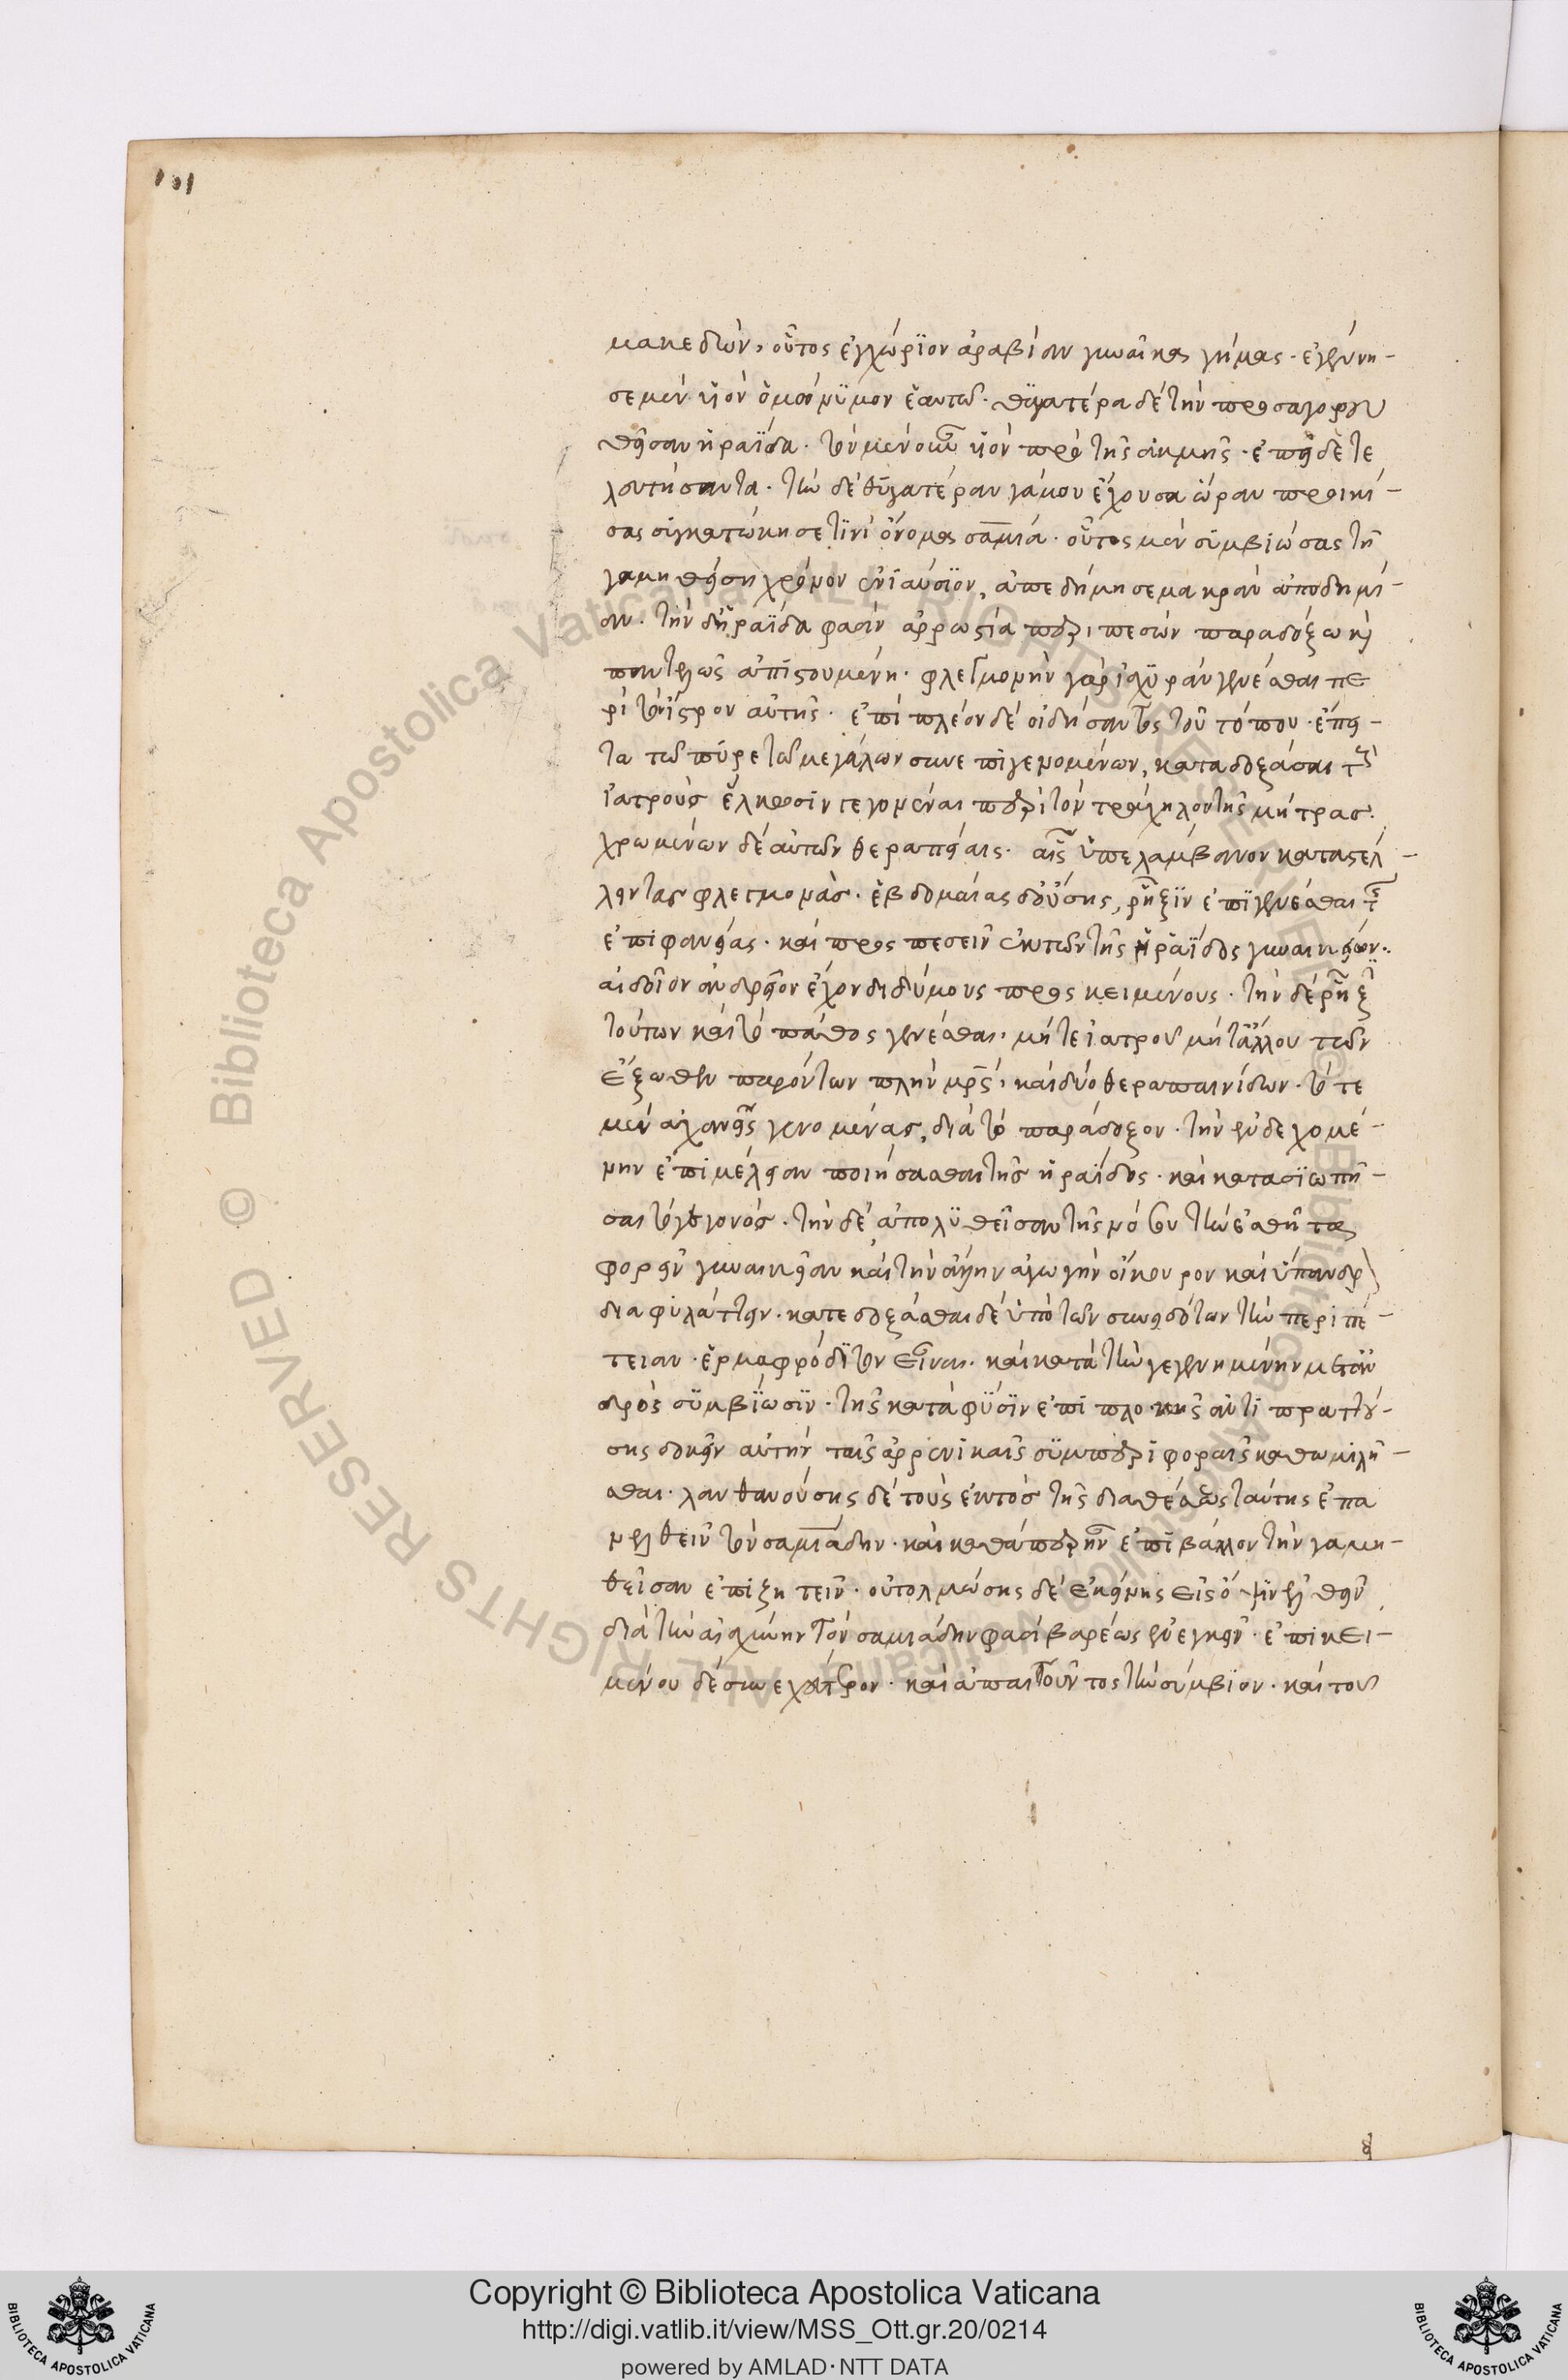 101
μακεδών, οὗτος ἐγχώριον ἀραβίαν γυναῖκας γήμας· ἐγέννη-
σε μὲν υἱὸν ὁμώνυμον ἑαυτῶ· θυγατέρα δὲ τὴν προσαγορευ
θεῖσαν ἡραΐδα· τὸν μὲν οὖν υἱὸν πρὸ τῆς ἀκμῆς· ἐπεῖδε τε
λευτήσαντα· τὴν δὲ θυγατέραν γάμου ἔχουσα ὥραν προικί-
σας συγκατώκησε τινὶ ὄνομα σαμιά· οὗτος μὲν συμβιώσας τῆ
γαμηθείση χρόνον ἐνιαύσιον, ἀπεδήμησε μακρὰν ἀποδημί-
αν· τὴν δ' ἡραΐδα φασὶν ἀρρωστία περιπεσὼν παραδόξω καὶ
παντελῶς ἀπιστουμένη· φλεγμονὴν γὰρ ἰσχυρὰν γενέσθαι πε
ρὶ τὸ ἦτρον αὐτῆς· ἐπὶ πλέον δὲ οἰδήσαντος τοῦ τόπου· ἔπει-
τα τῶ πυρετῶ μεγάλων συνεπιγενομένων, καταδοξάσαι τοὺς
ἰατροὺς ἕλκωσιν γεγονέναι περὶ τὸν τράχηλον τῆς μήτρας·
χρωμένων δὲ αὐτῶν θεραπείαις· αἷς ὑπελάμβανον καταστέλ-
λειν τὰς φλεγμονάς· ἑβδομαίας δ' οὔσης, ῥῆξιν ἐπιγενέσθαι τῆς
ἐπιφανείας· καὶ προσπεσεῖν ἐκ τῶν τῆς ἡραΐδος γυναικείων·
αἰδοῖον ἀνδρεῖον ἔχον διδύμους προσκειμένους· τὴν δὲ ῥῆξ
τούτων καὶ τὸ πάθος γενέσθαι, μήτε ἰατροῦ μήτ' ἄλλου τῶν
ἔξωθεν παρόντων πλὴν μρς, καὶ δύο θεραπαινίδων· τότε
μὲν ἀχανεῖς γενομένας, διὰ τὸ παράδοξον· τὴν ἐνδεχομέ-
νην ἐπιμέλειαν ποιήσασθαι τῆς ἡραΐδος· καὶ κατασιωπῆ-
σαι τὸ γεγονός· τὴν δὲ ἀπολυθεῖσαν τῆς νόσου τὴν ἐσθῆτα
φορεῖν γυναικείαν καὶ τὴν ἄλλην ἀγωγὴν οἴκουρον καὶ ὕπανδρ
διαφυλάττειν· κατεδοξάσθαι δὲ ὑπὸ τῶν συνειδότων τὴν περιπέ-
τειαν· ἑρμαφρόδιτον εἶναι· καὶ κατὰ τὴν γεγενημένην μετ' ἀν
δρὸς συμβίωσιν· τῆς κατὰ φύσιν ἐπιπλοκῆς ἀντιπραττού-
σης δοκεῖν αὐτὴν ταῖς ἀρρενικαῖς συμπεριφοραῖς καθωμιλῆ-
σθαι· λανθανούσης δὲ τοὺς ἐντὸς τῆς διαθέσεως ταύτης ἐπα
νελθεῖν τὸν σαμιάδην· καὶ καθάπερ ἦν ἐπιβάλλον τὴν γαμη-
θεῖσαν ἐπιζητεῖν· οὐ τολμώσης δὲ ἐκείνης εἰς ὄψιν ἐλθεῖν
διὰ τὴν αἰσχύνην τὸν σαμιάδην φασὶ βαρέως ἐνεγκεῖν· ἐπικει-
μένου δὲ συνεχέστερον· καὶ ἀπαιτοῦντος τὴν σύμβιον· καὶ τοῦ
BIBLIOTECA APOSTOLICA VATICANA
Copyright © Biblioteca Apostolica Vaticana
http://digi.vatlib.it/view/MSS_Ott.gr.20/0214
powered by AMLAD·NTT DATA
BIBLIOTECA APOSTOLICA VATICANA
© Biblioteca Apostolica Vaticana ALL RIGHTS RESERVED © Biblioteca Apostolica Vaticana ALL RIGHTS RESERVED